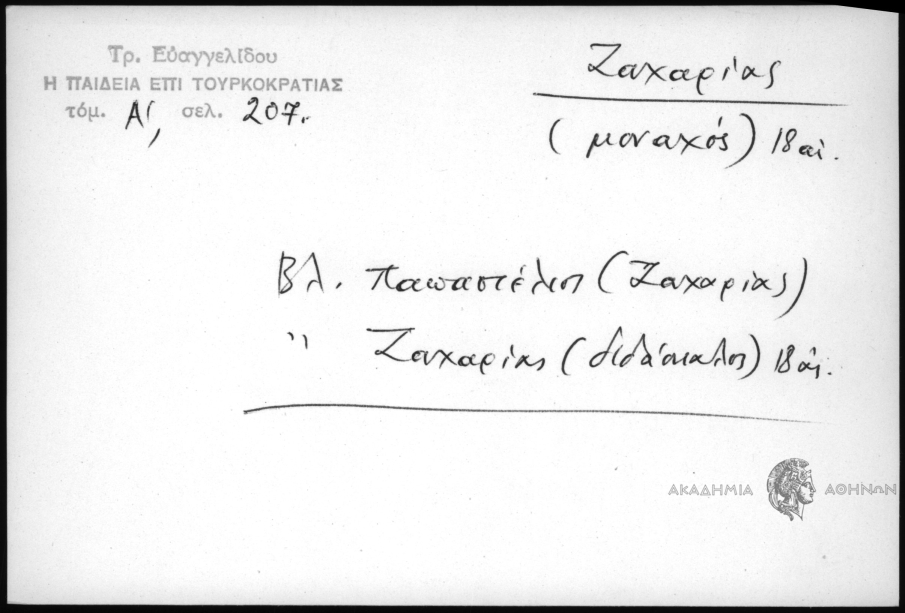 Τρ. Εὐαγγελίδου
Η ΠΑΙΔΕΙΑ ΕΠΙ ΤΟΥΡΚΟΚΡΑΤΙΑΣ
τόμ. Α', σελ. 207.
Ζαχαρίας
(μοναχός) 18 αἰ.
Βλ. (Ζαχαρίας)
" Ζαχαρίας (διδάσκαλος) 18 αἰ.
ΑΚΑΔΗΜΙΑ ΑΘΗΝΩΝ